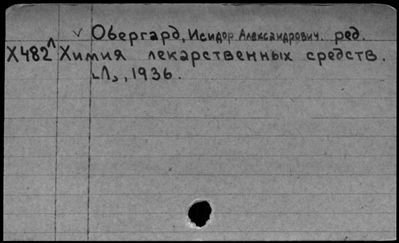 Обергард, Исидор Александрович. ред.
X482Л Химия лекарственных средств.
Л., 1936.